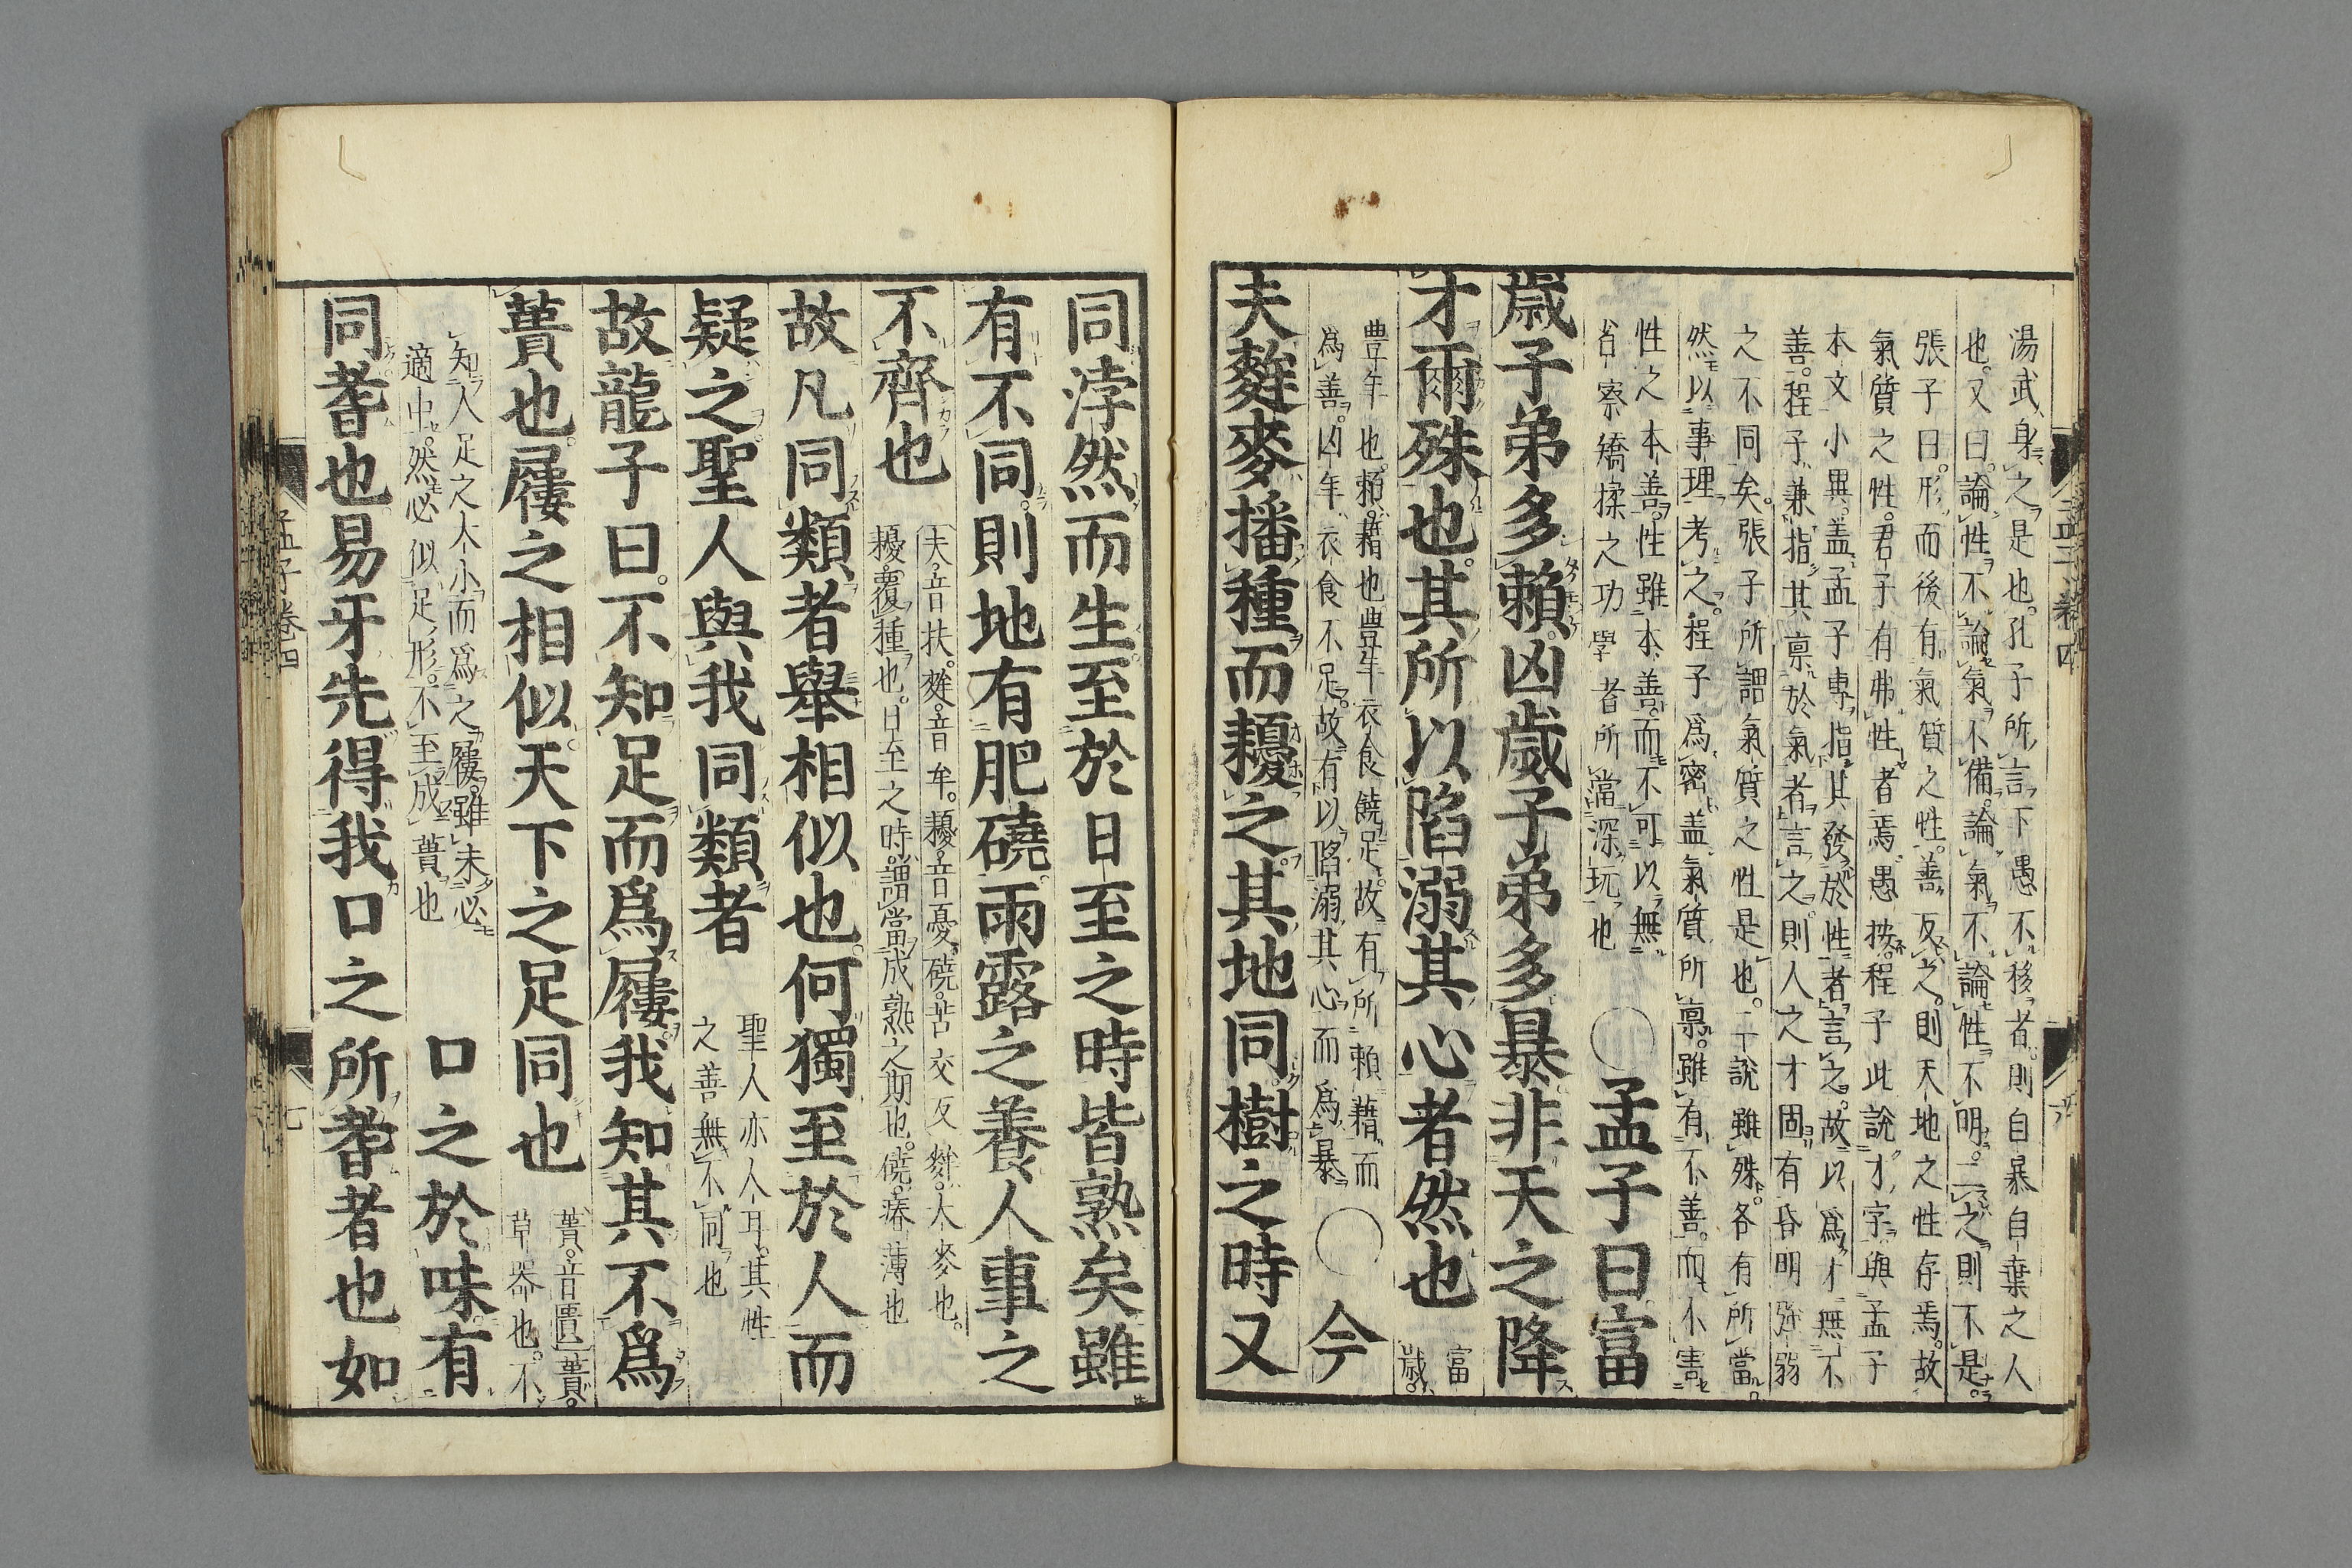 湯武身之是也。孔子所言下愚不移者。則自暴自棄之人
也。又曰。論性不論氣不備。論氣不論性不明。二之則不是。
張子曰。形而後有氣質之性。善反之。則天地之性存焉。故
氣質之性。君子有弗性者焉。愚按。程子此說才字。與孟子
本文小異。蓋孟子專指其發於性者言之。故以爲才無不
善。程子兼指其稟於氣者言之。則人之才固有昏明强弱
之不同矣。張子所謂氣質之性是也。二說雖殊。各有所當。
然以事理考之。程子爲密。蓋氣質所稟。雖有不善。而不害
性之本善。性雖本善。而不可以無
省察矯揉之功。學者所當深玩也
○孟子曰。富
歲子弟多賴。凶歲子弟多暴。非天之降
才爾殊也。其所以陷溺其心者然也
富
歲。
豐年也。賴。藉也。豐年衣食饒足。故有所賴藉而
爲善。凶年衣食不足。故有以陷溺其心而爲暴
○今
夫麰麥播種而耰之。其地同。樹之時又
同。浡然而生。至於日至之時皆熟矣。雖
有不同。則地有肥磽。雨露之養。人事之
不齊也
夫。音扶。麰。音牟。耰。音憂。磽。苦交反。麰。大麥也。
耰。覆種也。日至之時。謂當成熟之期也。磽。瘠薄也
故凡同類者。舉相似也。何獨至於人而
疑之。聖人與我同類者
聖人亦人耳。其性
之善無不同也
故龍子曰。不知足而爲屨。我知其不爲
蕢也。屨之相似。天下之足同也
蕢。音匱。蕢。
草器也。不
知人足之大小而爲之屨。雖未必
適中。然必似足形。不至成蕢也
口之於味有
同耆也。易牙先得我口之所耆者也。如
孟子卷四
孟子卷四
七